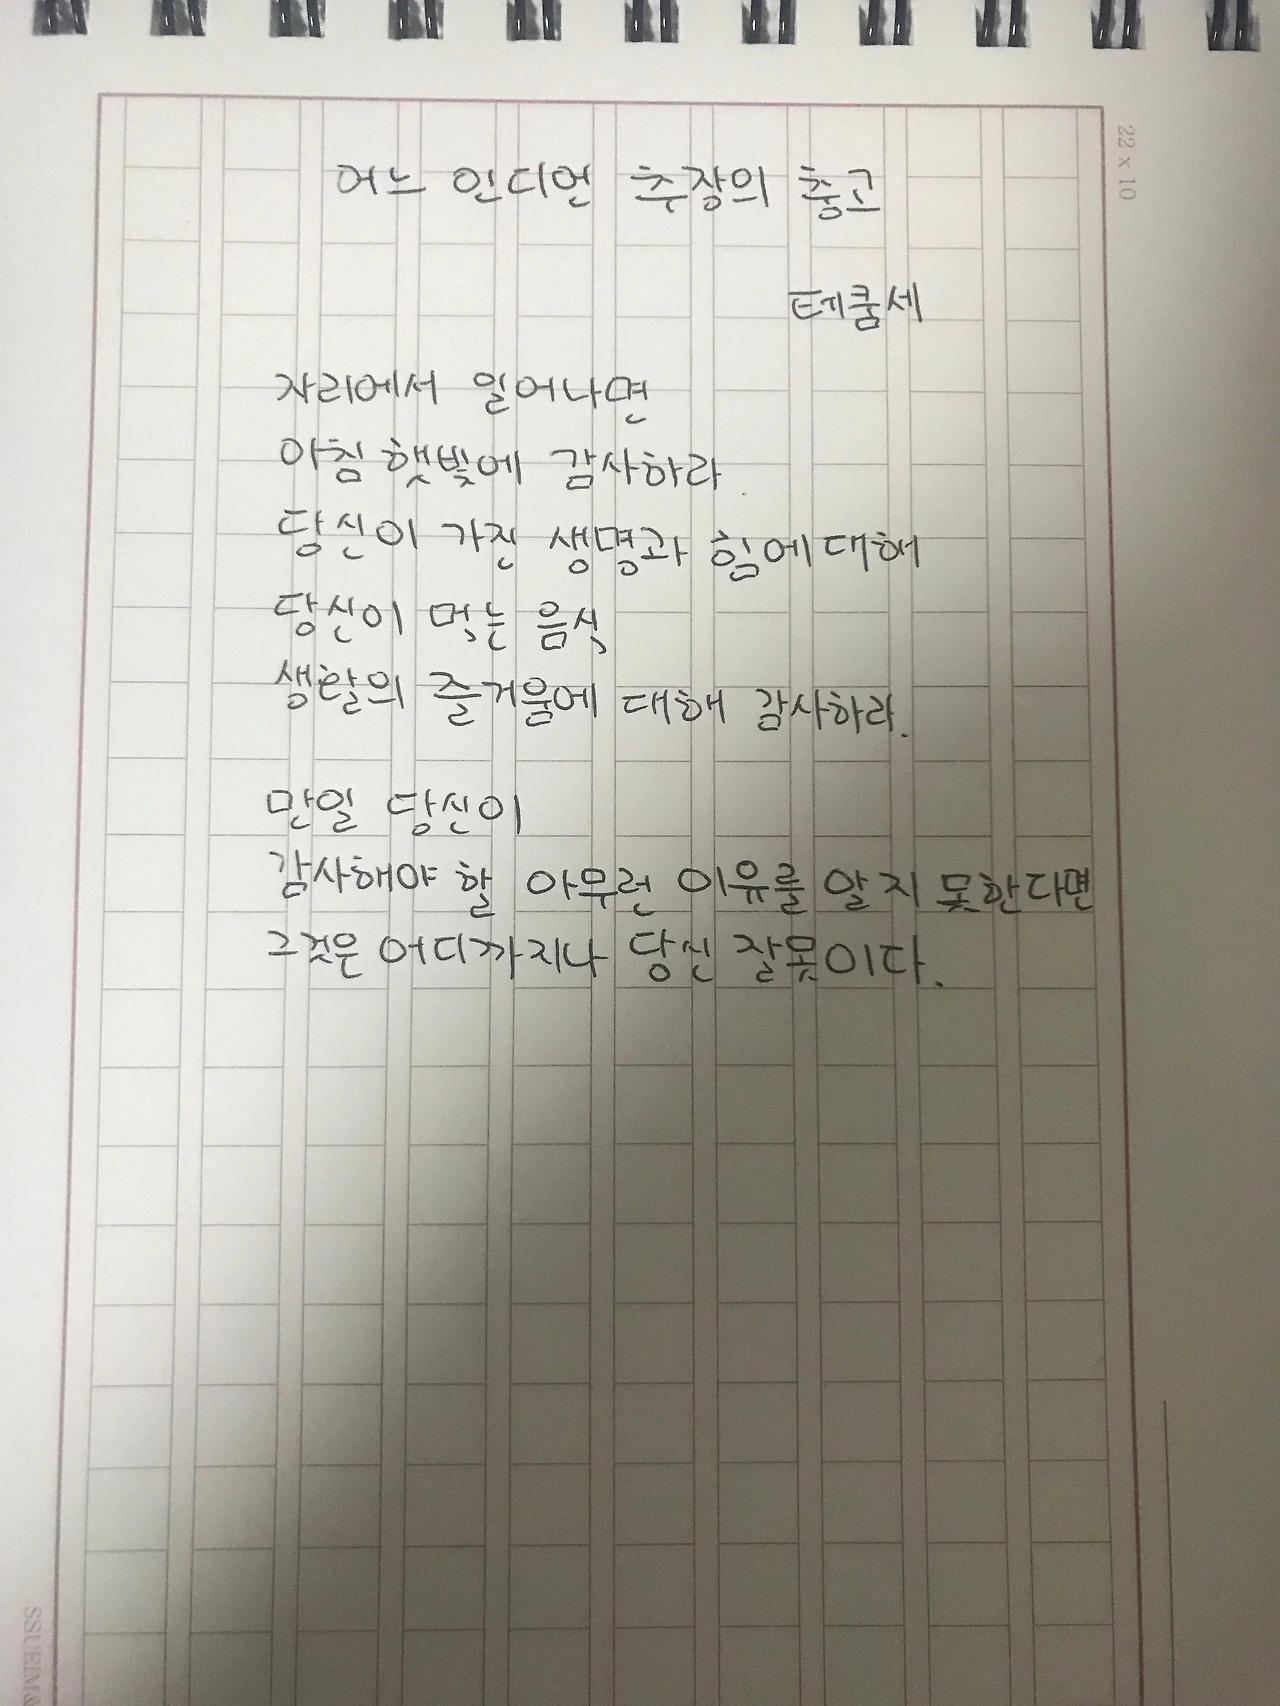 어느 인디언 추장의 충고
테쿰세
자리에서 일어나면
아침 햇빛에 감사하라
당신이 가진 생명과 힘에 대해
당신이 먹는 음식
생활의 즐거움에 대해 감사하라.
만일 당신이
감사해야 할 아무런 이유를 알지 못한다면
그것은 어디까지나 당신 잘못이다.
22 x 10